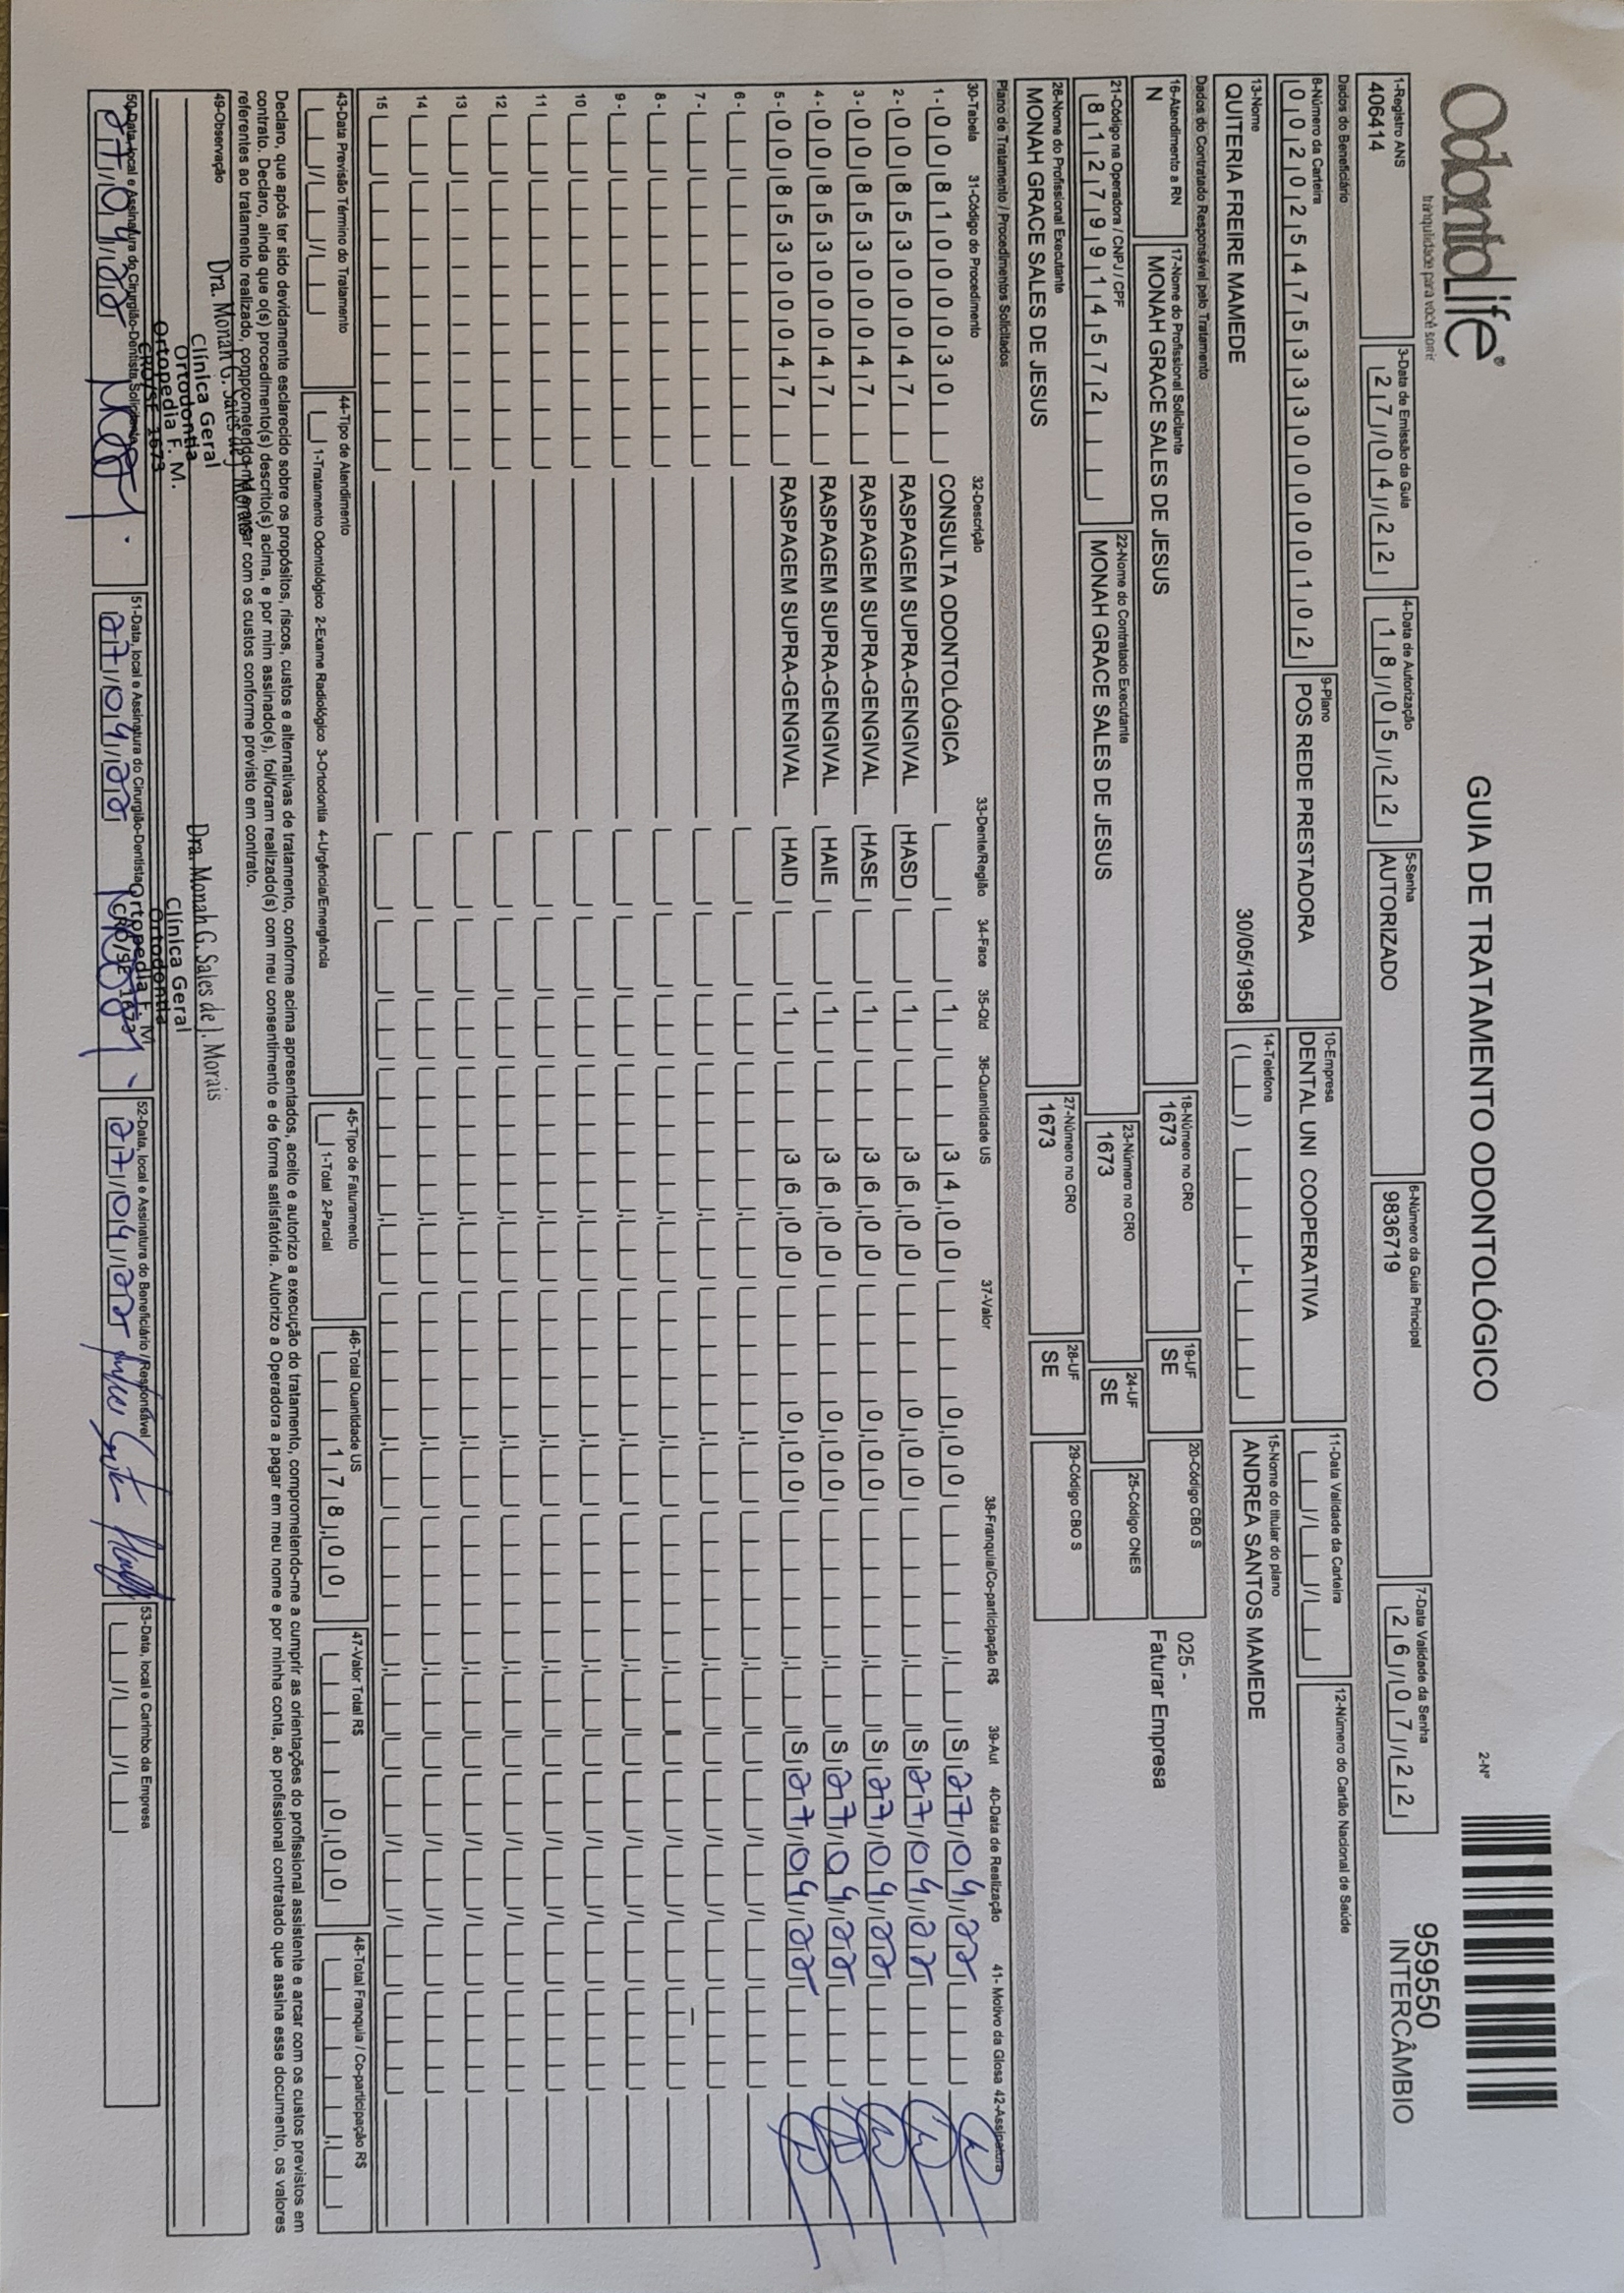 OdontoLife®
tranquilidade para você sorrir
GUIA DE TRATAMENTO ODONTOLÓGICO
2-Nº
959550
INTERCÂMBIO
1-Registro ANS
406414
3-Data de Emissão da Guia
27/04/22
4-Data de Autorização
18/05/22
5-Senha
AUTORIZADO
6-Número da Guia Principal
9836719
7-Data Validade da Senha
26/07/22
Dados do Beneficiário
8-Número da Carteira
0020254753330000102
9-Plano
POS REDE PRESTADORA
10-Empresa
DENTAL UNI COOPERATIVA
11-Data Validade da Carteira
12-Número do Cartão Nacional de Saúde
13-Nome
QUITERIA FREIRE MAMEDE
30/05/1958
14-Telefone
15-Nome do titular do plano
ANDREA SANTOS MAMEDE
Dados do Contratado Responsável pelo Tratamento
16-Atendimento a RN
N
17-Nome do Profissional Solicitante
MONAH GRACE SALES DE JESUS
18-Número no CRO
1673
19-UF
SE
20-Código CBO S
025 -
Faturar Empresa
21-Código na Operadora / CNPJ / CPF
81279914572
22-Nome do Contratado Executante
MONAH GRACE SALES DE JESUS
23-Número no CRO
1673
24-UF
SE
25-Código CNES
26-Nome do Profissional Executante
MONAH GRACE SALES DE JESUS
27-Número no CRO
1673
28-UF
SE
29-Código CBO S
Plano de Tratamento / Procedimentos Solicitados
30-Tabela 31-Código do Procedimento 32-Descrição 33-Dente/Região 34-Face 35-Qtd 36-Quantidade US 37-Valor 38-Franquia/Co-participação R$ 39-Aut 40-Data de Realização 41- Motivo da Glosa 42-Assinatura
1- 00 81000030 CONSULTA ODONTOLÓGICA 1 34,00 0,00 S 27/04/22
2- 00 85300047 RASPAGEM SUPRA-GENGIVAL HASD 1 36,00 0,00 S 27/04/22
3- 00 85300047 RASPAGEM SUPRA-GENGIVAL HASE 1 36,00 0,00 S 27/04/22
4- 00 85300047 RASPAGEM SUPRA-GENGIVAL HAIE 1 36,00 0,00 S 27/04/22
5- 00 85300047 RASPAGEM SUPRA-GENGIVAL HAID 1 36,00 0,00 S 27/04/22
6-
7-
8-
9-
10
11
12
13
14
15
43-Data Previsão Término do Tratamento
44-Tipo de Atendimento
1-Tratamento Odontológico 2-Exame Radiológico 3-Ortodontia 4-Urgência/Emergência
45-Tipo de Faturamento
1-Total 2-Parcial
46-Total Quantidade US
178,00
47-Valor Total R$
0,00
48-Total Franquia / Co-participação R$
Declaro, que após ter sido devidamente esclarecido sobre os propósitos, riscos, custos e alternativas de tratamento, conforme acima apresentados, aceito e autorizo a execução do tratamento, comprometendo-me a cumprir as orientações do profissional assistente e arcar com os custos previstos em
contrato. Declaro, ainda que o(s) procedimento(s) descrito(s) acima, e por mim assinado(s), foi/foram realizado(s) com meu consentimento e de forma satisfatória. Autorizo a Operadora a pagar em meu nome e por minha conta, ao profissional contratado que assina esse documento, os valores
referentes ao tratamento realizado, comprometendo-me arcar com os custos conforme previsto em contrato.
49-Observação
Dra. Monah G. Sales de J. Morais
Clínica Geral
Ortodontia
Ortopedia F. M.
CRO/SE 1673
Dra. Monah G. Sales de J. Morais
Clínica Geral
Ortodontia
Ortopedia F. M.
CRO/SE 1673
50-Data, local e Assinatura do Cirurgião-Dentista Solicitante
27/04/22
51-Data, local e Assinatura do Cirurgião-Dentista
27/04/22
52-Data, local e Assinatura do Beneficiário / Responsável
27/04/22
53-Data, local e Carimbo da Empresa